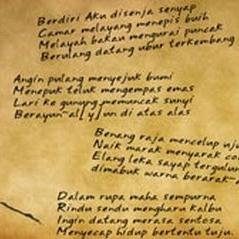 Berdiri Aku disenja senyap
Camar melayang menepis buih
Melayah bakau mengurai puncak
Berulang datang ubur terkembang
Angin pulang menyejuk bumi
Menepuk teluk mengempas emas
Lari ke gunung memuncak sunyi
Berayun-al[y]un di atas alas
Benang raja mencelup uj
Naik marak menyarak co
Elang leka sayap tergulun
dimabuk warna berarak-
Dalam rupa maha sempurna
Rindu sendu mengharu kalbu
Ingin datang merasa sentosa
Menyecap hidup bertentu tuju.